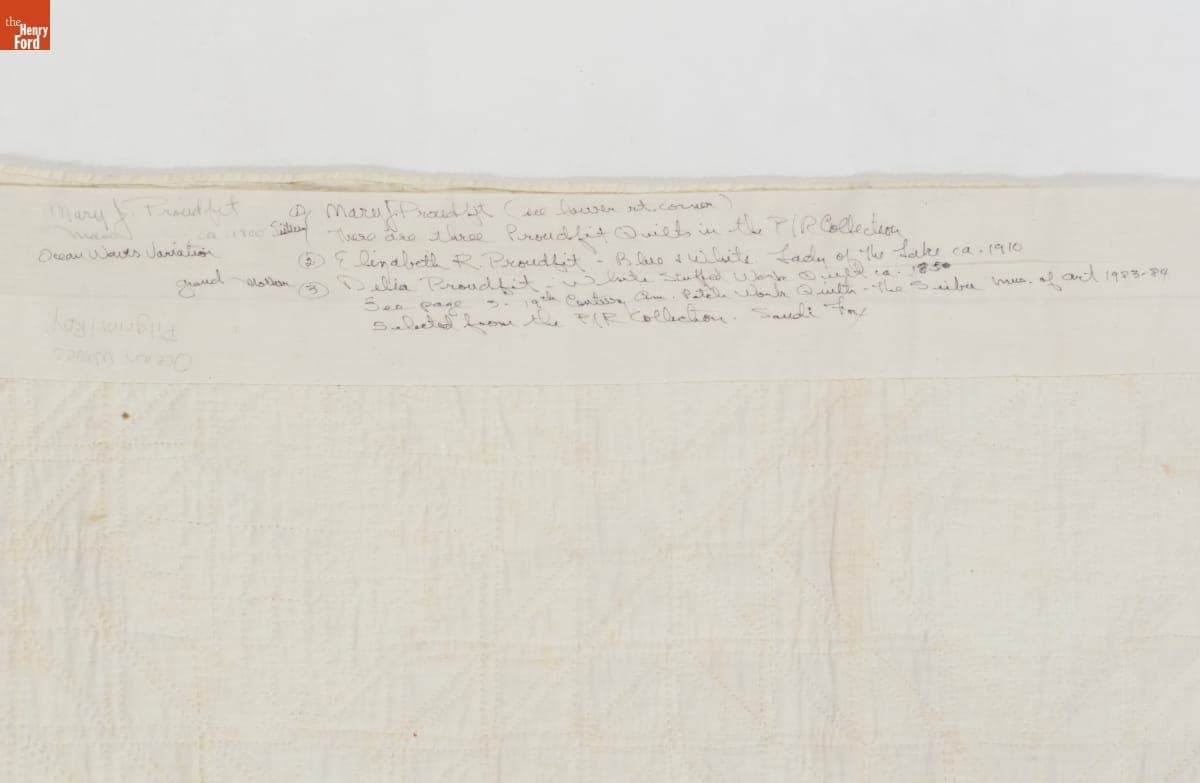 the
Henry
Ford
Mary J. Proudfit
Made ca. 1900
Ocean Waves Variation
Sisters
① Mary J. Proudfit (see lower rt. corner)
There are three Proudfit Quilts in the P/R Collection
② Elizabeth R. Proudfit - Blue & White Lady of The Lake ca. 1910
grand mother ③ Delia Proudfit - White Stuffed Work Quilt ca. 1850
See page 3 - 19th Century Am. Patch Work Quilts - The Seibu Mus. of art 1983-84
Selected from the P/R Collection. Sandi Fox
Pilgrim/Roy
Ocean Waves